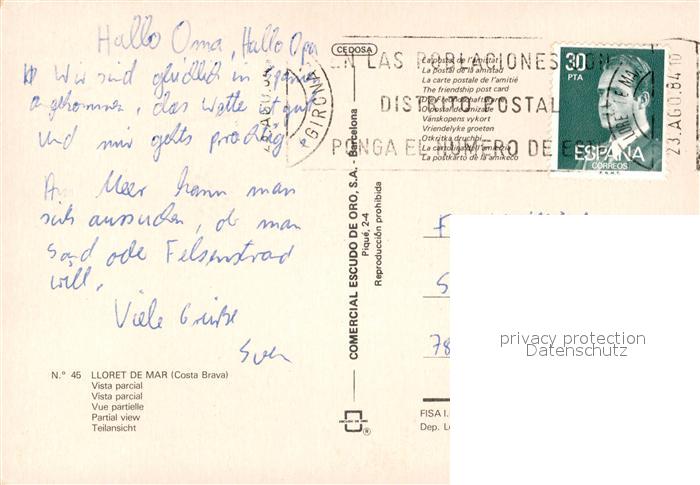 Hallo Oma, Hallo Opa
Wir sind glücklich in Spanien
angekommen, das Wetter ist gut
und mir gehts prächtig.
Am Meer kann man
sich aussuchen, ob man
Sand oder Felsenstrand
will.
Viele Grüße
Sven
N.° 45 LLORET DE MAR (Costa Brava)
Vista parcial
Vista parcial
Vue partielle
Partial view
Teilansicht
CEDOSA
COMERCIAL ESCUDO DE ORO, S.A. - Barcelona
Piqué, 2-4
Reproducción prohibida
ESCUDO DE ORO
®
La postal de l'amistat
La postal de la amistad
La carte postale de l'amitié
The friendship post card
O postal de amizade
Vänskapens vykort
Vriendelyke groeten
La postkarto de la amikeco
EN LAS POBLACIONES CON
DISTRITO POSTAL
PONGA EL NUMERO DE
GIRONA
23 AGO. 84 10
30
PTA
ESPAÑA
CORREOS
F
S
78
FISA I.
Dep. L
privacy protection
Datenschutz